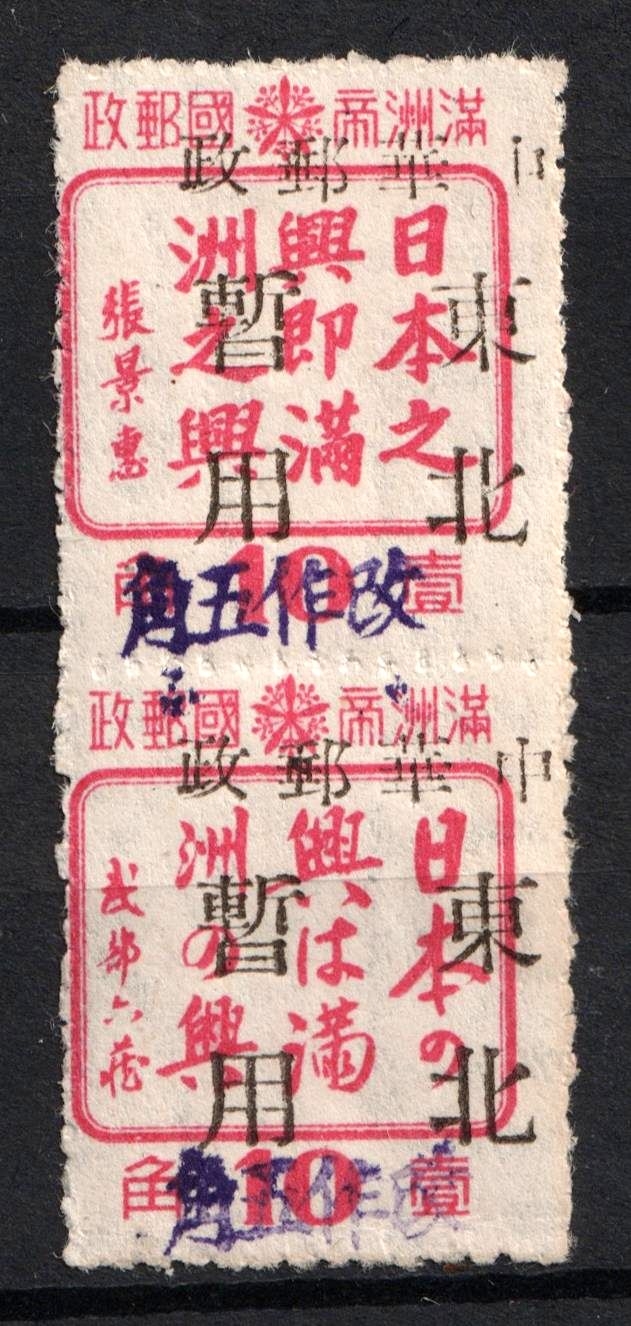 滿洲帝國郵政
中華郵政
日本之
興即滿
洲之興
張景惠
東北
暫用
壹10角
改作五角
滿洲帝國郵政
中華郵政
日本の
興は滿
洲の興
武部六藏
東北
暫用
壹10角
改作五角